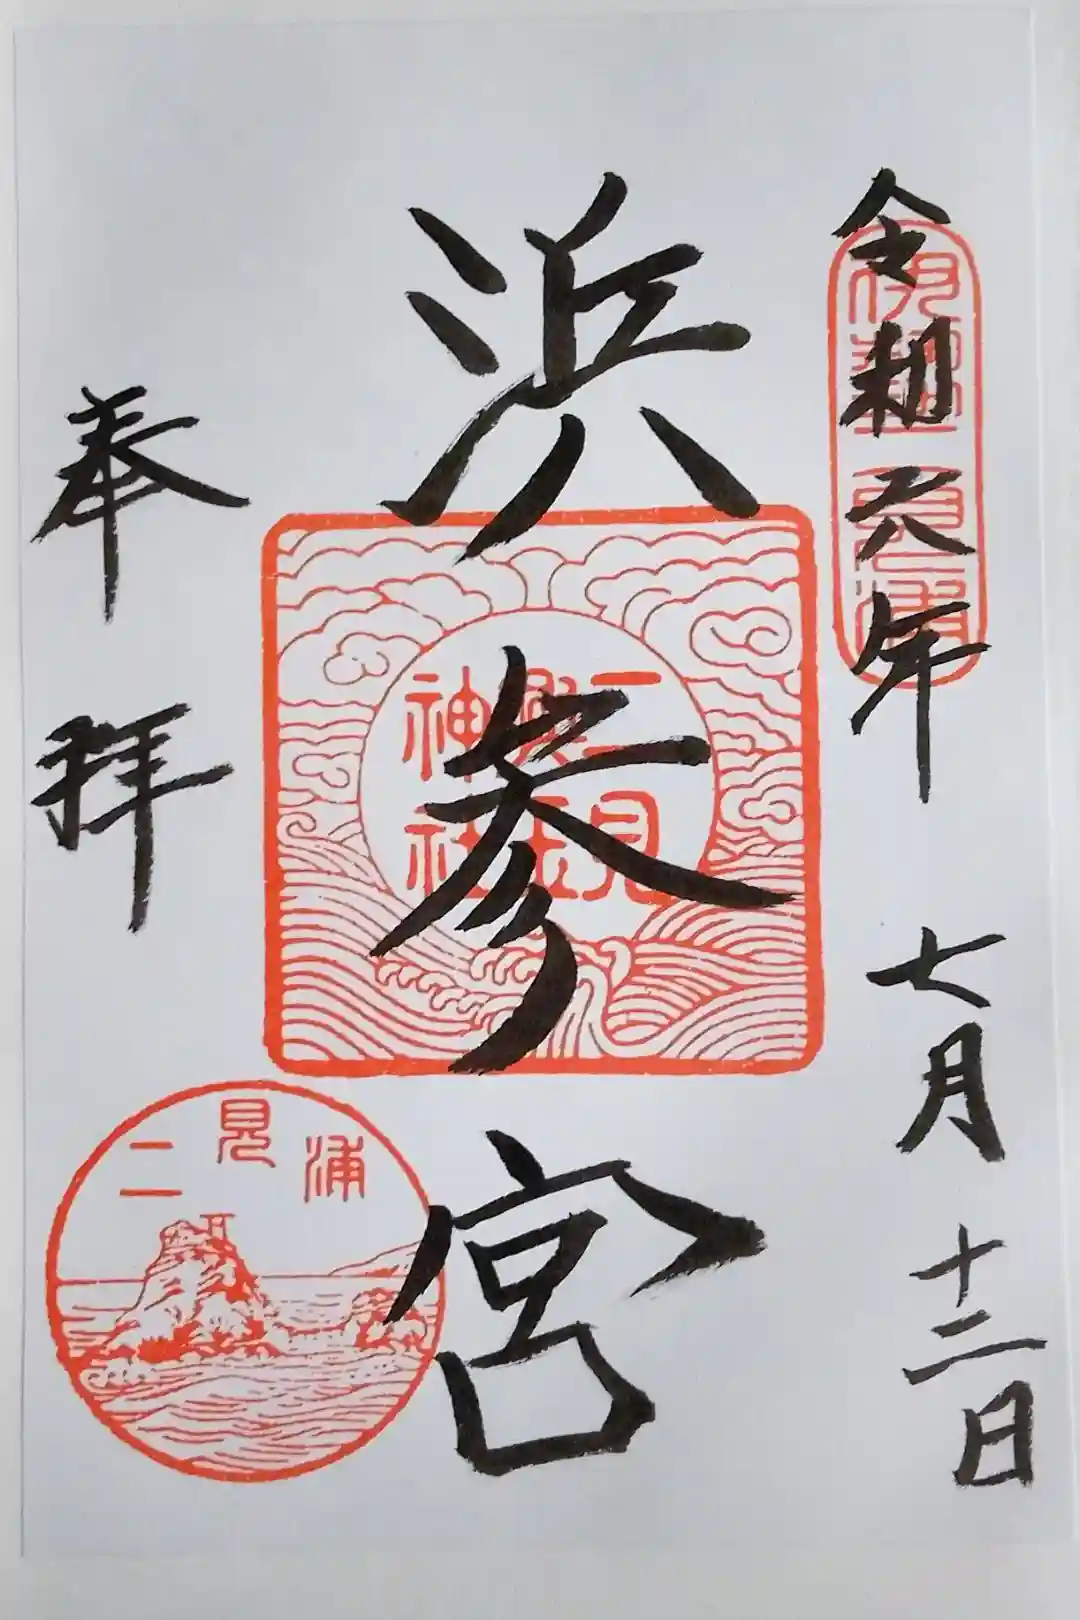 令和六年 七月 十二日
伊勢二見浦
浜参宮
二見
興玉
神社
奉拝
二見浦